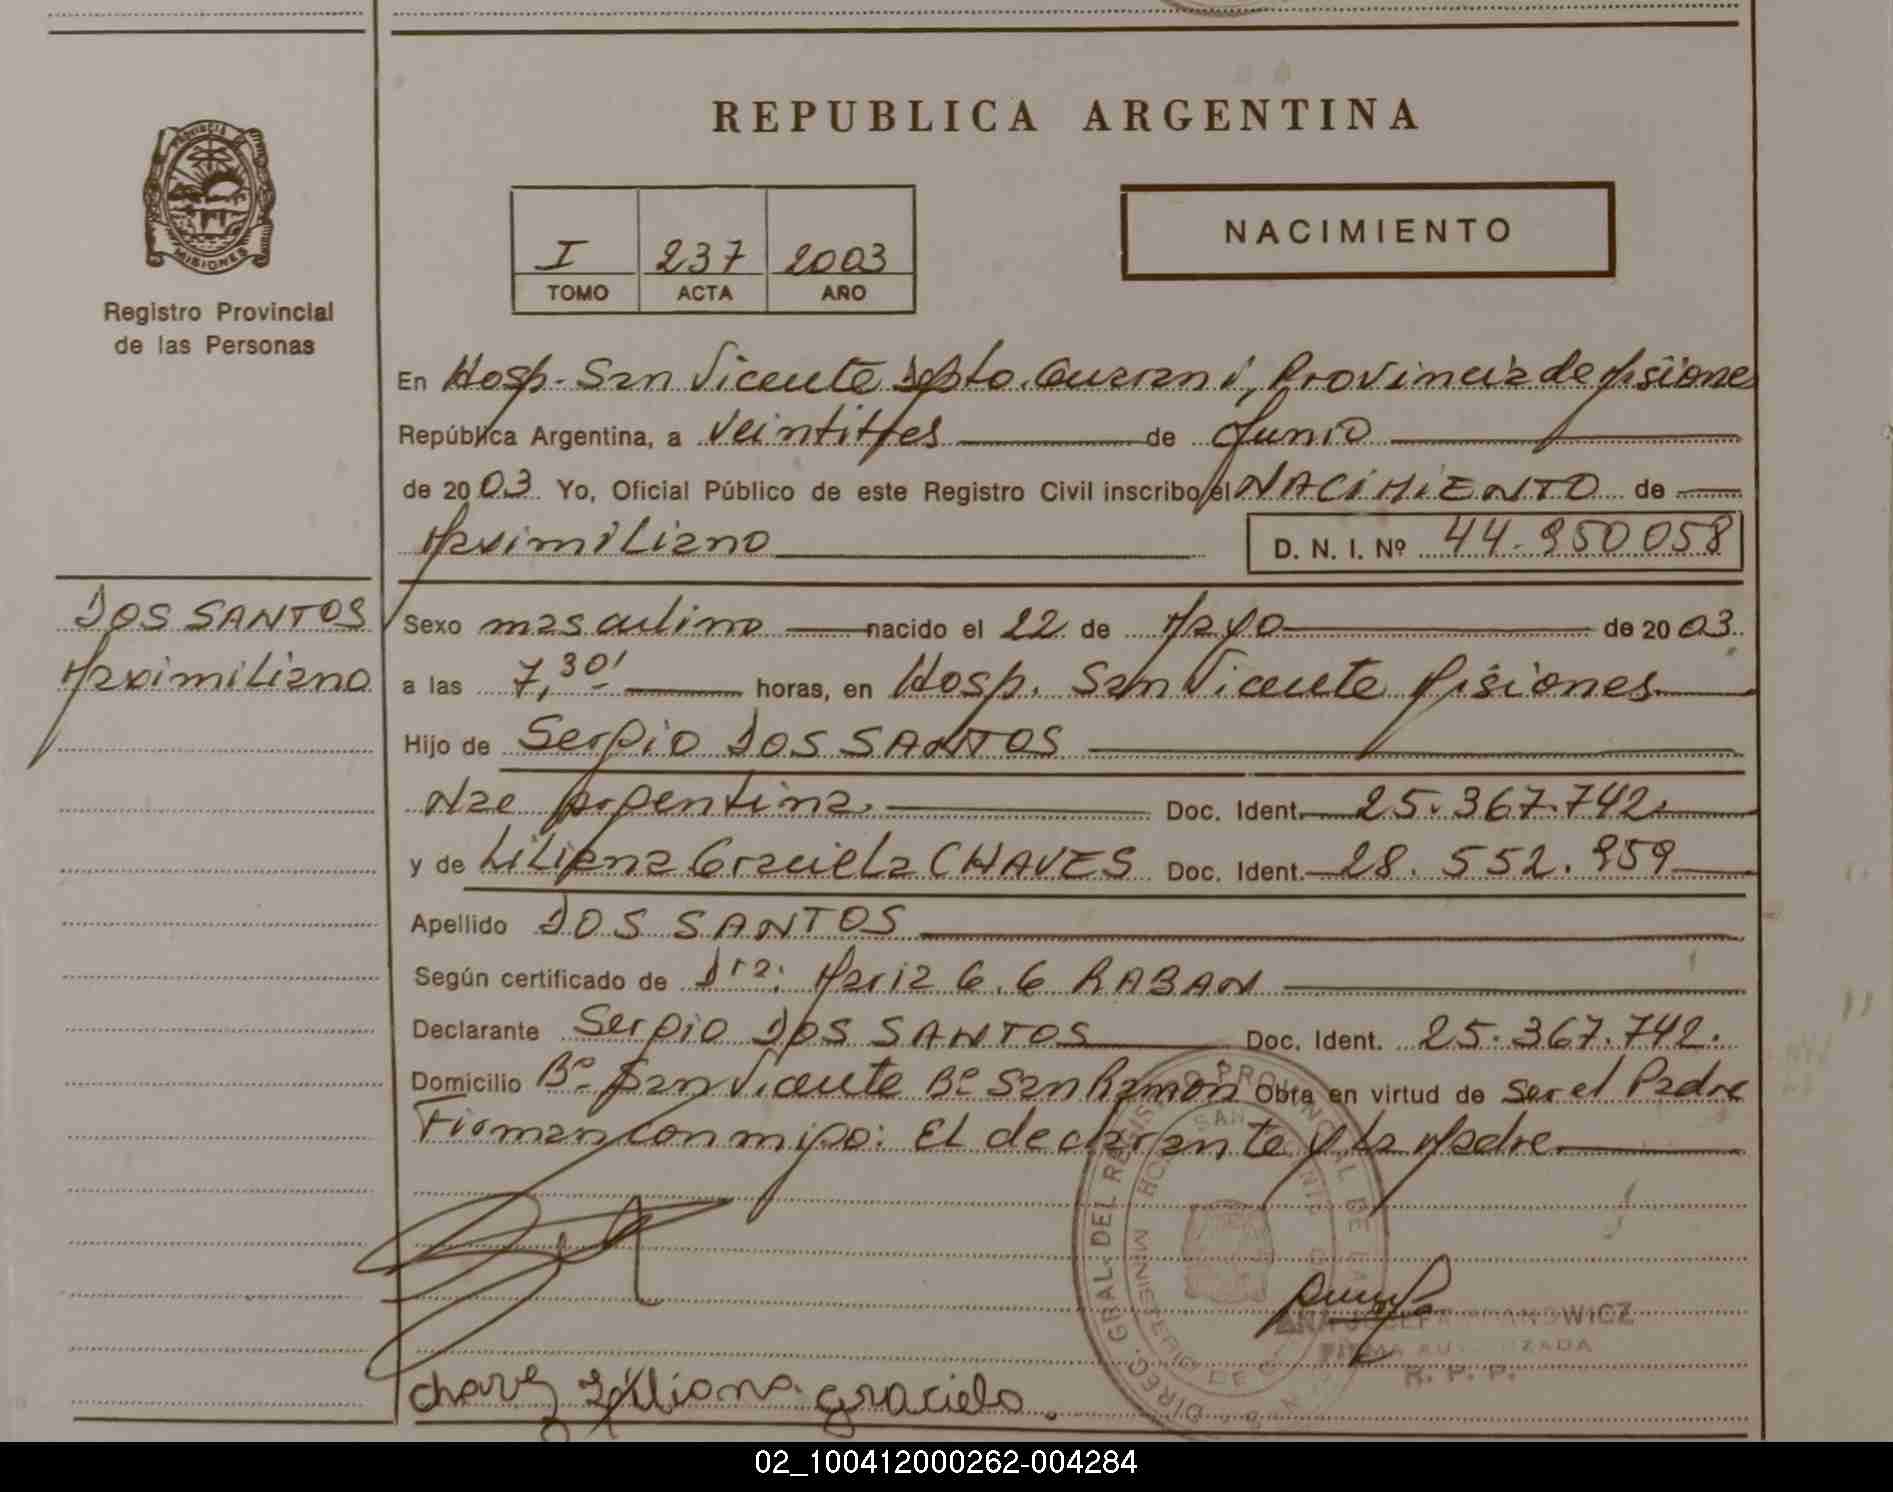 REPUBLICA ARGENTINA
PROVINCIA DE MISIONES
Registro Provincial
de las Personas
I 237 2003
TOMO ACTA AÑO
NACIMIENTO
En Hosp. San Vicente Dpto. Guarani, Provincia de Misiones
República Argentina, a Veintitres de Junio
de 2003 Yo, Oficial Público de este Registro Civil inscribo el NACIMIENTO de
Maximiliano D. N. I. Nº 44.950058
DOS SANTOS
Maximiliano
Sexo masculino nacido el 22 de Mayo de 2003.
a las 7,30' horas, en Hosp. San Vicente Misiones
Hijo de Sergio DOS SANTOS
Nac Argentina. Doc. Ident. 25.367.742.
y de Liliana Graciela CHAVES Doc. Ident. 28.552.959
Apellido DOS SANTOS
Según certificado de Dra. Maria G. G RABAN
Declarante Sergio DOS SANTOS Doc. Ident. 25.367.742.
Domicilio Bº San Vicente Bº San Ramon Obra en virtud de ser el Padre
Firman con migo: El declarante y la Madre
DIREC. GRAL. DEL REGISTRO PROVINCIAL DE LA
MINISTERIO DE
ANA JOSEFA
FIRMA AUTORIZADA
R. P. P.
Chavez Liliana graciela.
02_100412000262-004284